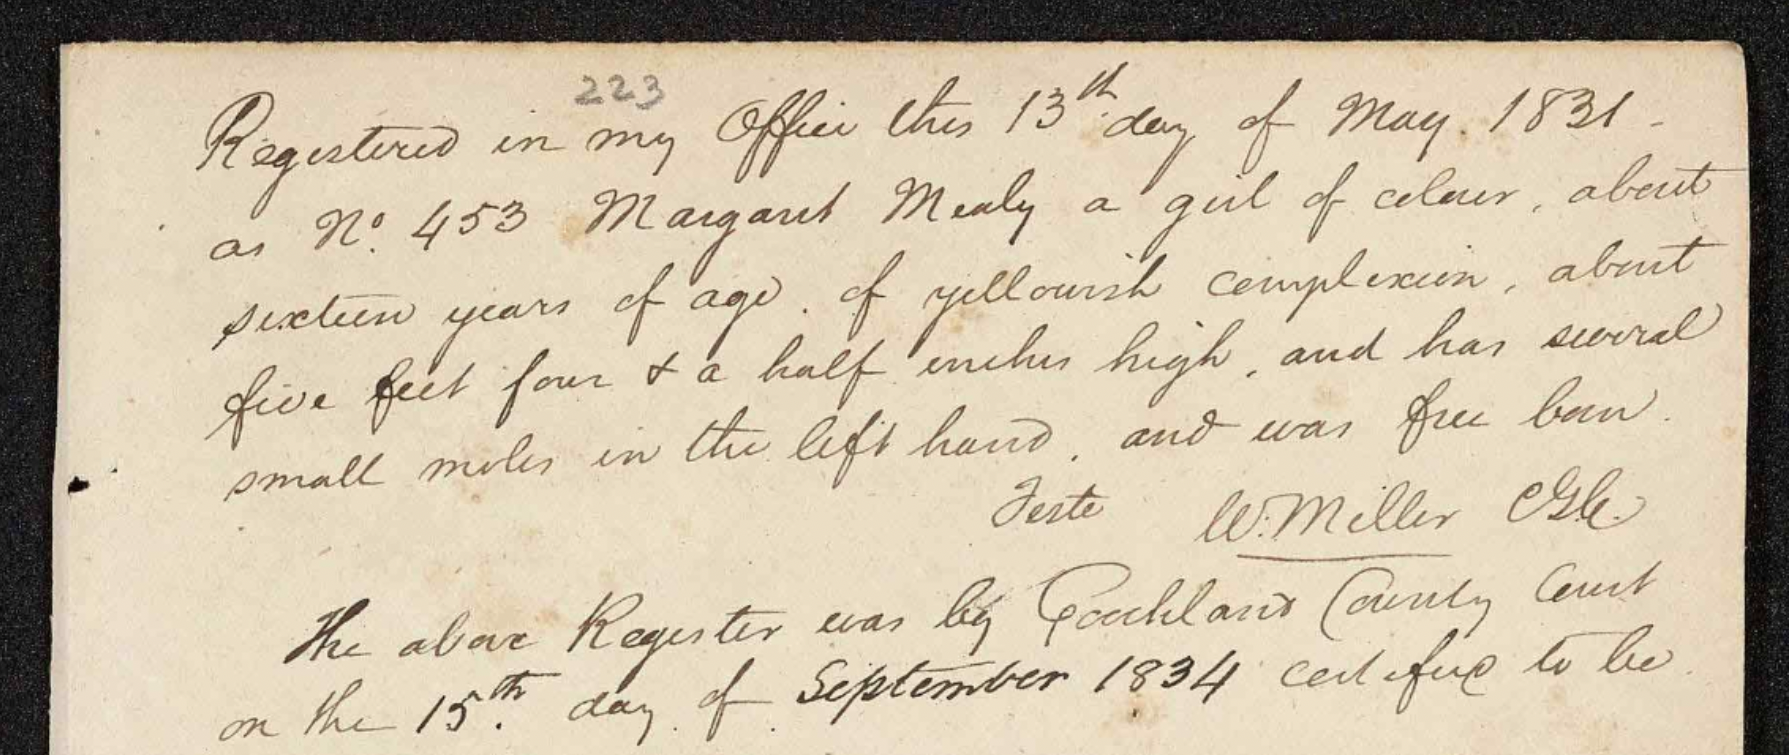 223
Registered in my Office this 13th day of May. 1831.
as No. 453 Margaret Mealy a girl of colour, about
sixteen years of age, of yellowish complexion, about
five feet four & a half inches high, and has several
small moles in the left hand, and was free born.
Teste W. Miller CGC.
The above Register was by Goochland County Court
on the 15th. day of September 1834 certified to be